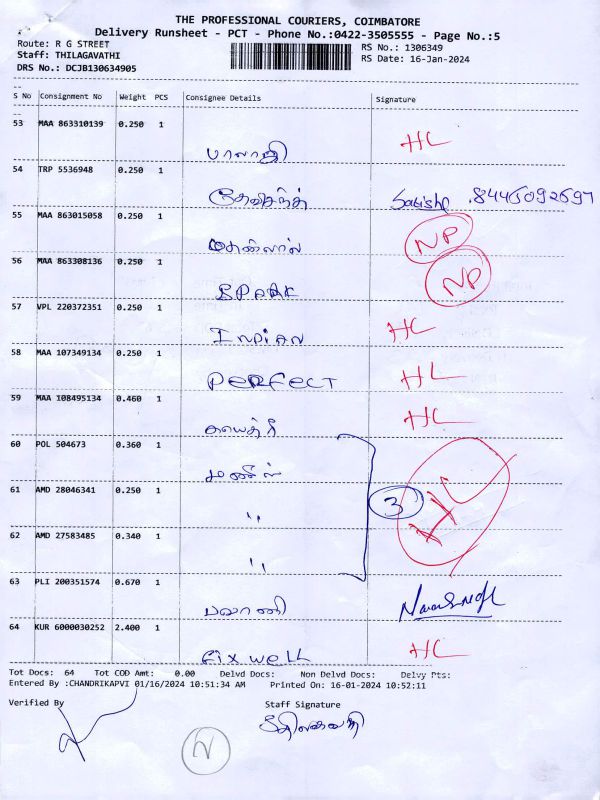 THE PROFESSIONAL COURIERS, COIMBATORE
Delivery Runsheet - PCT - Phone No.:0422-3505555 - Page No.:5
Route: R G STREET RS No.: 1306349
Staff: THILAGAVATHI RS Date: 16-Jan-2024
DRS No.: DCJB130634905
S No Consignment No Weight PCS Consignee Details Signature
53 MAA 863310139 0.250 1
பாலாஜி HL
54 TRP 5536948 0.250 1
Satish .8446092697
55 MAA 863015058 0.250 1
NP
56 MAA 863308136 0.250 1
SPARK NP
57 VPL 220372351 0.250 1
INDIAN HL
58 MAA 107349134 0.250 1
PERFECT HL
59 MAA 108495134 0.460 1
காயத்ரி HL
60 POL 504673 0.360 1
மணீஸ்
61 AMD 28046341 0.250 1
" 3 HL
62 AMD 27583485 0.340 1
"
63 PLI 200351574 0.670 1
பவானி
64 KUR 6000030252 2.400 1
Fixwell HL
Tot Docs: 64 Tot COD Amt: 0.00 Delvd Docs: Non Delvd Docs: Delvy Pts:
Entered By :CHANDRIKAPVI 01/16/2024 10:51:34 AM Printed On: 16-01-2024 10:52:11
Verified By Staff Signature
N